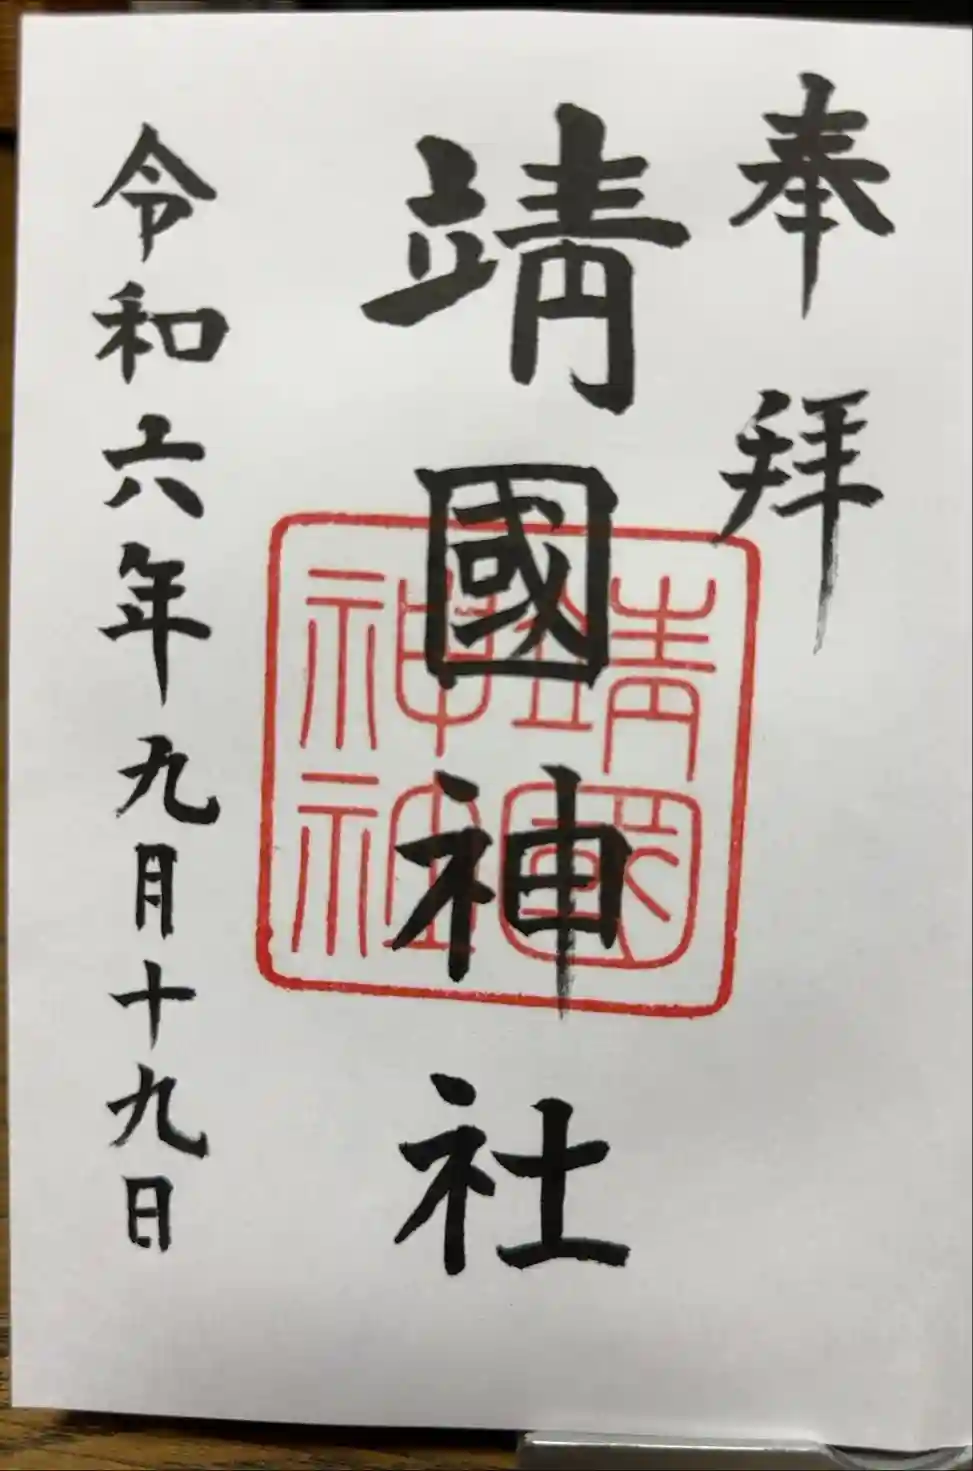 奉拝
靖國神社
靖國神社
令和六年九月十九日